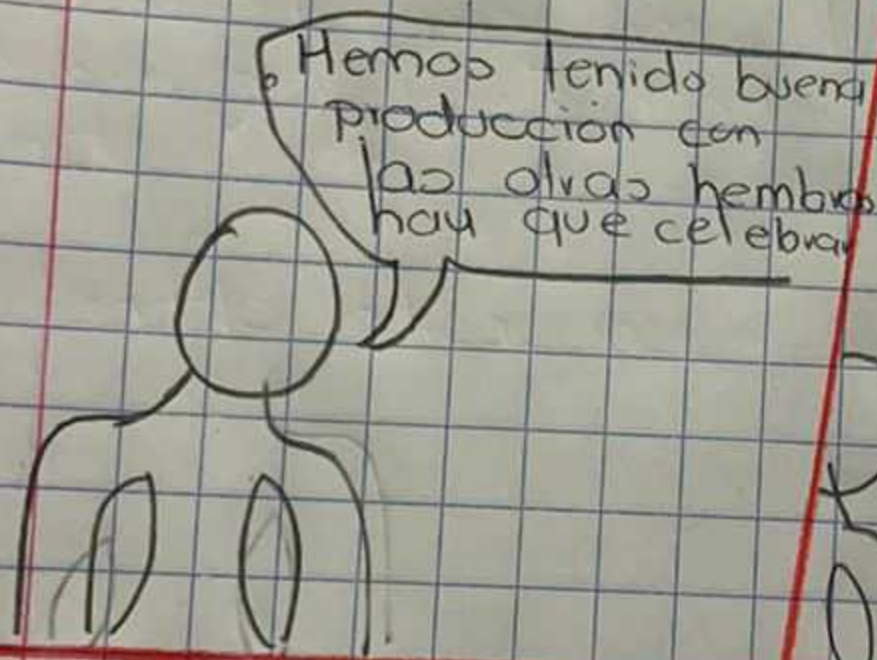 Hemos tenido buena
producción con
las otras hembras
hay que celebrar